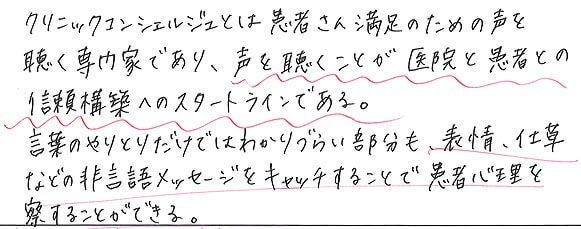 クリニックコンシェルジュとは患者さん満足のための声を
聴く専門家であり、声を聴くことが医院と患者との
信頼構築へのスタートラインである。
言葉のやりとりだけではわかりづらい部分も、表情、仕草
などの非言語メッセージをキャッチすることで患者心理を
察することができる。